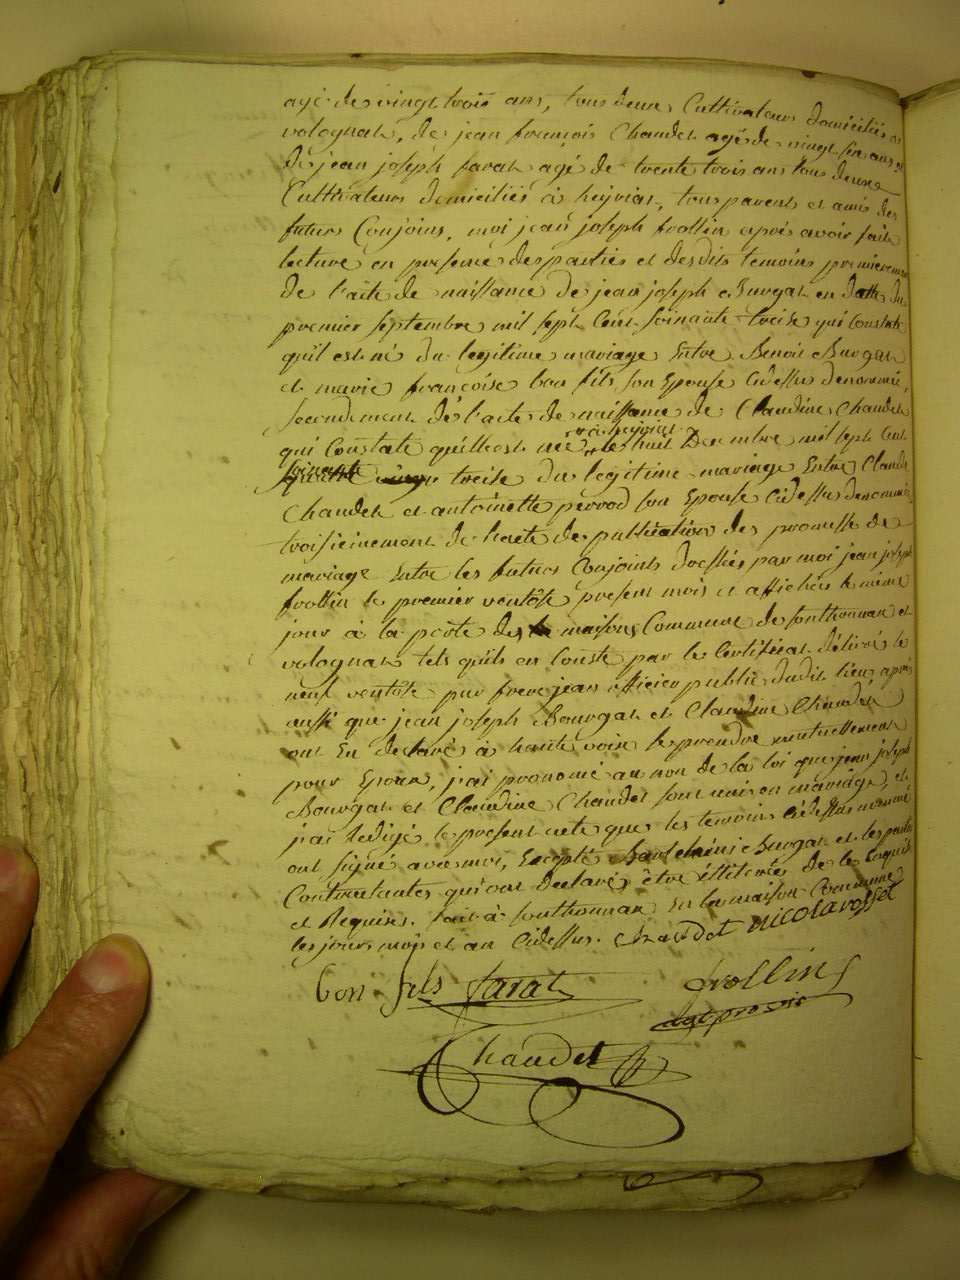 agé de vingt trois ans, tous deux Cultivateurs domiciliés a
volognat, de jean françois Chaudet agé de vingt six ans et
de jean joseph farat agé de trente trois ans tous deux
Cultivateurs domiciliés à heyriat, tous parents et amis des
futurs Conjoins, moi jean joseph frollin aprés avoir fait
lecture en presence des parties et desdits temoins premierement
de l'acte de naissance de jean joseph Burgat en datte du
premier septembre mil sept Cent soixante treise qui Constate
qu'il est né du legitime mariage Entre Benoit Burgat
et marie françoise bon fils son Epouse Cidessus denommé,
secondement de l'acte de naissance de Claudine Chaudet
qui Constate qu'ill est née à heyriat le huit Decembre mil sept Cent
soixante treise du legitime mariage Entre Claude
Chaudet et antoinette perrod son Epouse Cidessus denommés,
troisieinement de l'acte de publication des promesse de
mariage Entre les futurs Conjoints dressées par moi jean joseph
frollin le premier ventôse present mois et affichés le même
jour à la porte des maisons Commune de sonthonnax et
volognat tels qu'ils en Conste par le Certificat délivré le
neuf ventôse par frere jean officier public dudit lieu, aprés
aussi que jean joseph Bourgat et Claudine Chaudet
ont En déclaré à haute voix se prendre mutuellement
pour Epoux, j'ai prononcé au non de la loi que jean joseph
Bourgat et Claudine Chaudet sont unis en mariage, et
j'ai redigé le present acte que les temoins Cidessus nommé
ont signé avec moi, Excepté Barthelmi Burgat et les parties
Contractantes qui ont Declarés être illiterés de ce Enquis
et Requis. fait à sonthonnax En la maison Commune
les jours mois et an Cidessus. Chaudet nicolarosset
bon fils farat frollin
agt provis
Chaudet